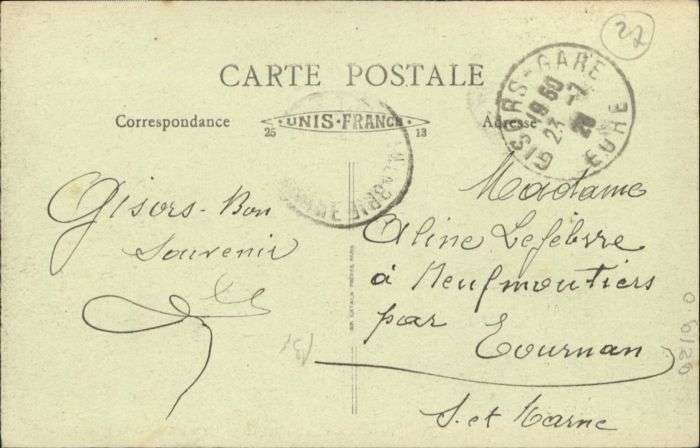 27
CARTE POSTALE
Correspondance
25 UNIS-FRANCE 13
Adresse
GISORS-GARE
19 50
23 -7
28
EURE
Gisors - Bon
Souvenir
Madame
Aline Lefebvre
à Neufmoutiers
par
Tournan
S. et Marne